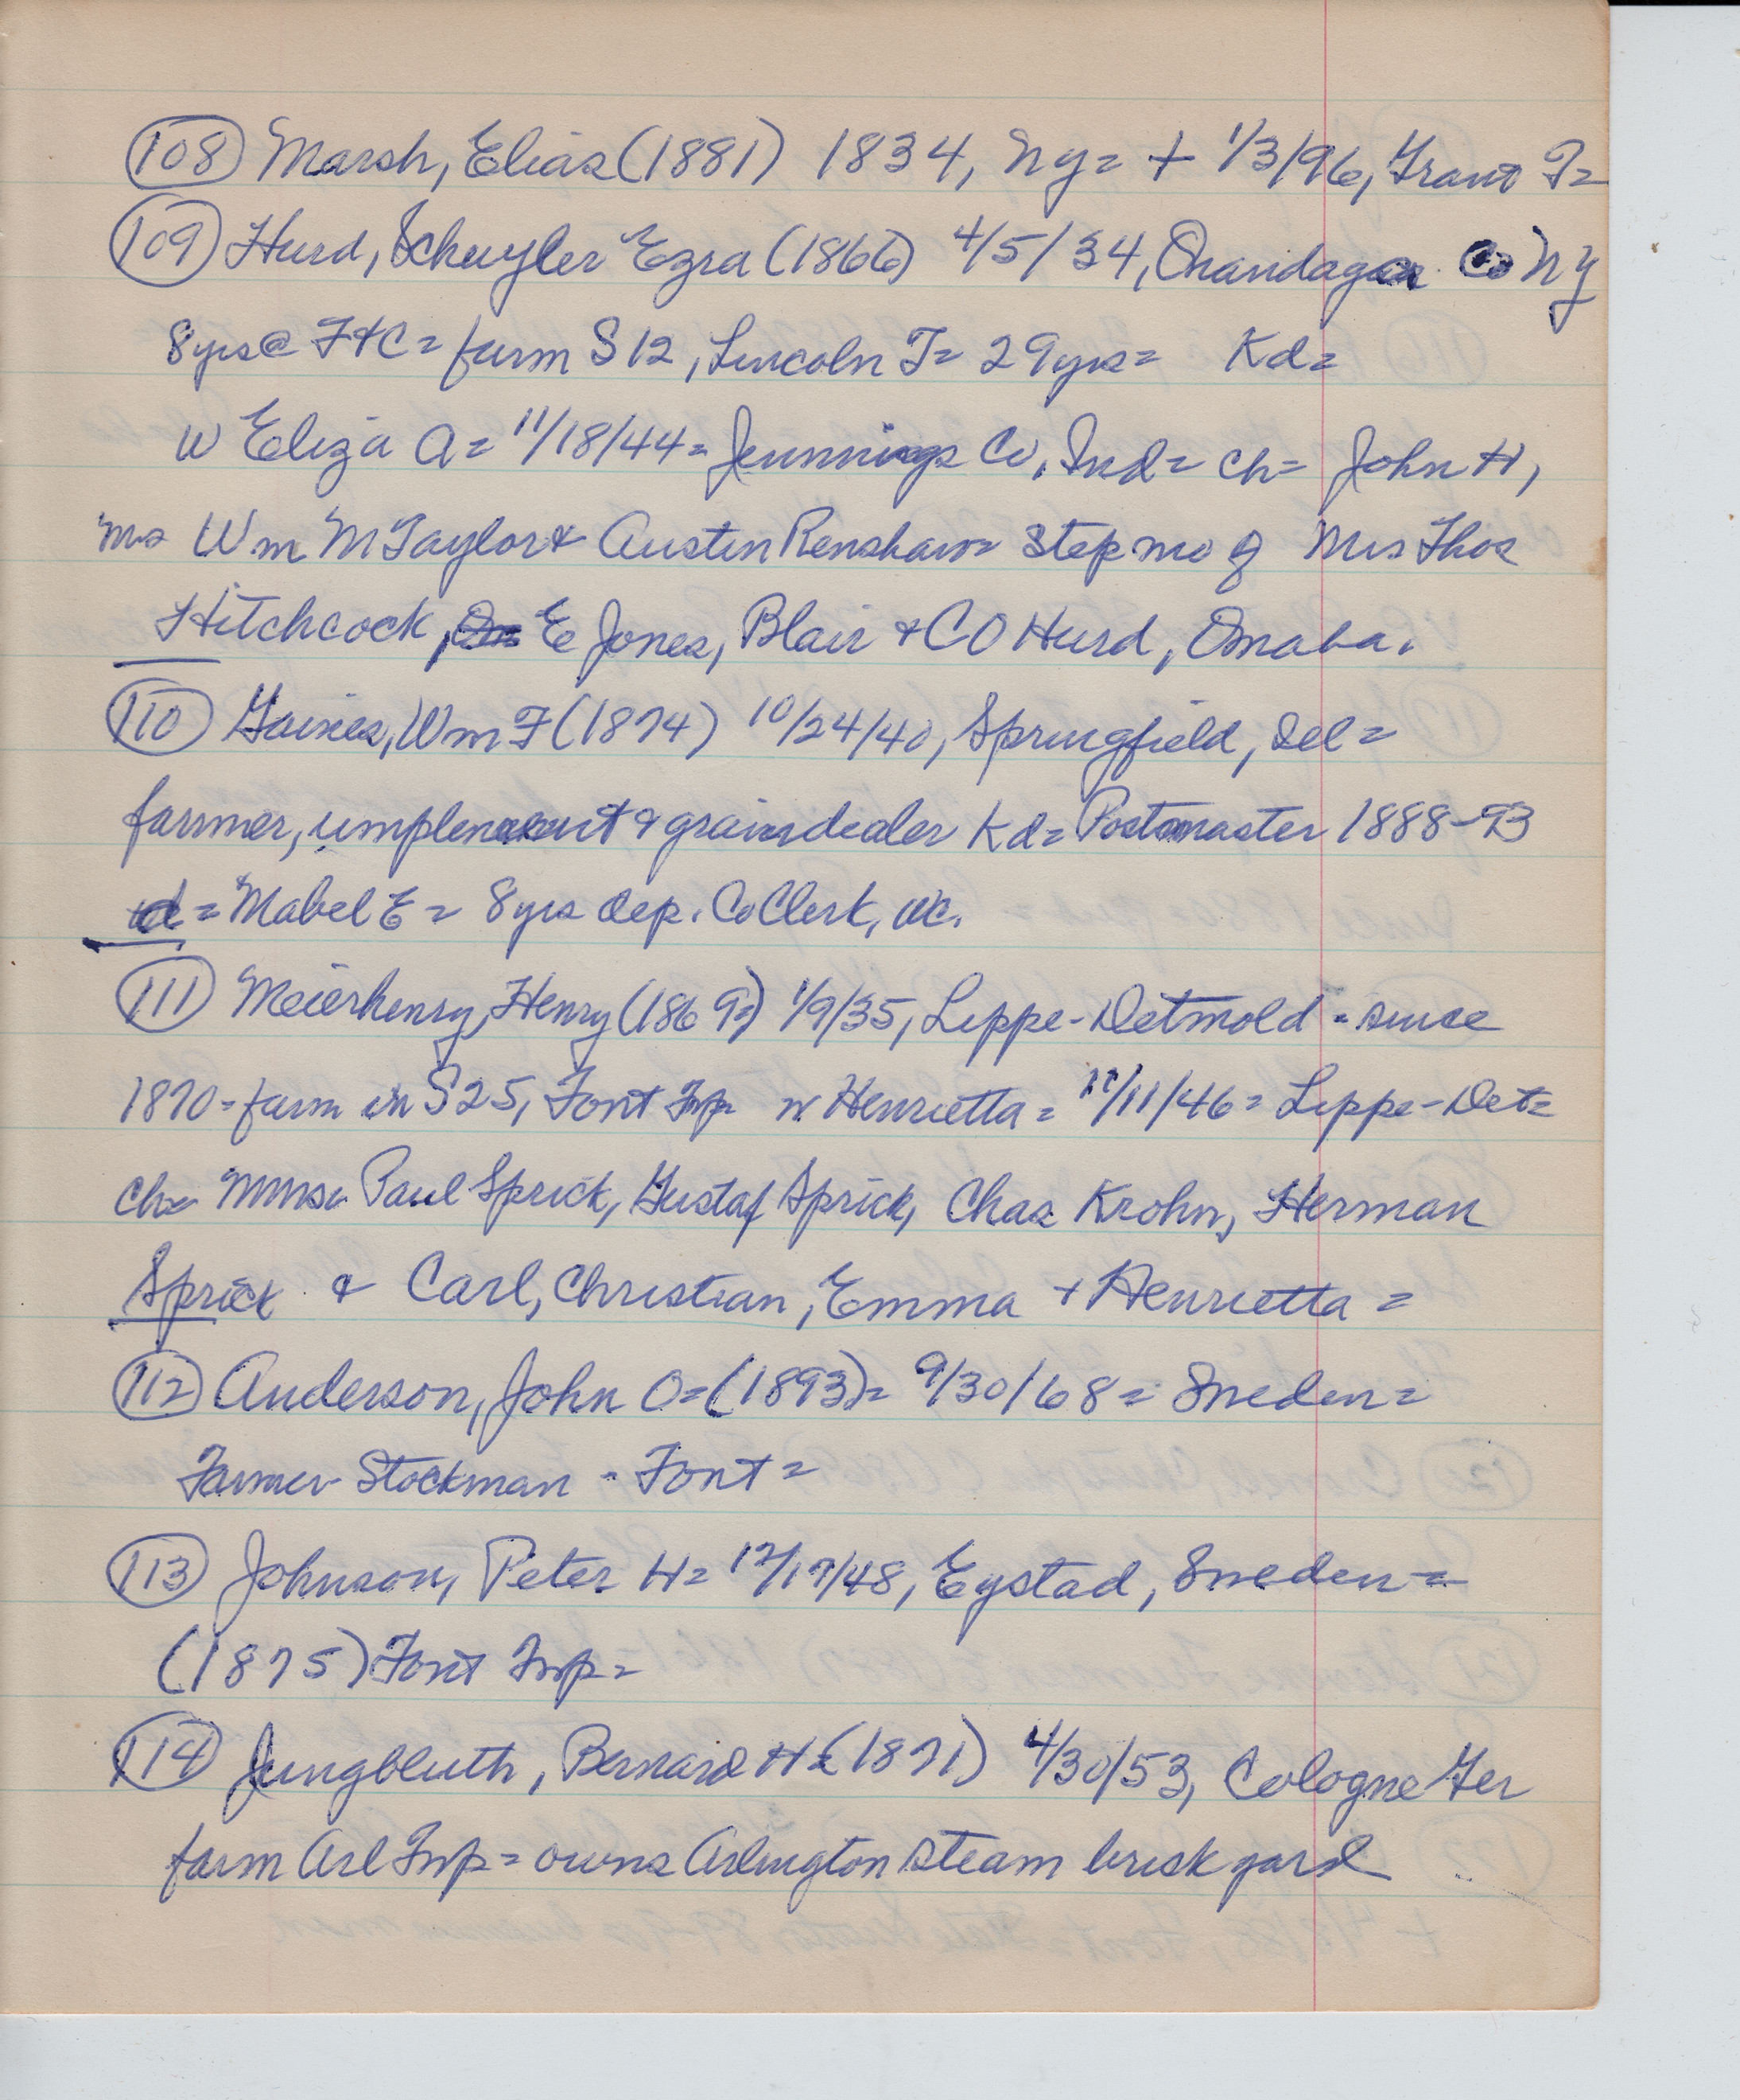 (108) Marsh, Elias (1881) 1834, Ny= + 1/3/96, Grant T=
(109) Hurd, Schuyler Ezra (1866) 4/5/34, Onandagoa Co Ny
8yrs@ Ft C= farm S12, Lincoln T= 29yrs= Kd=
W Eliza A= 11/18/44= Jennings Co, Ind= ch= John H,
Mrs Wm M Taylor & Austin Renshaw= Step mo of Mrs Thos
Hitchcock, E Jones, Blair + CO Hurd, Omaha.
(110) Gaines, Wm F (1874) 10/24/40, Springfield, Ill=
farmer, implement & grain dealer Kd= Postmaster 1888-93
d= Mabel E= 8yrs dep. Co Clerk, WC.
(111) Meierhenry, Henry (1869=) 1/9/35, Lippe-Detmold - since
1870- farm in S25, Font Twp= w. Henrietta= 11/11/46= Lippe-Det=
ch= Mmse Paul Sprick, Gustaf Sprick, Chas Krohn, Herman
Sprick & Carl, Christian, Emma + Henrietta=
(112) Anderson, John O=(1893)= 9/30/68= Sweden=
Farmer-Stockman - Font=
(113) Johnson, Peter H= 12/17/48, Eystad, Sweden=
(1875) Font Twp=
(114) Jungbluth, Bernard H=(1871) 4/30/53, Cologne Ger
farm Arl Twp= owns Arlington steam brick yard